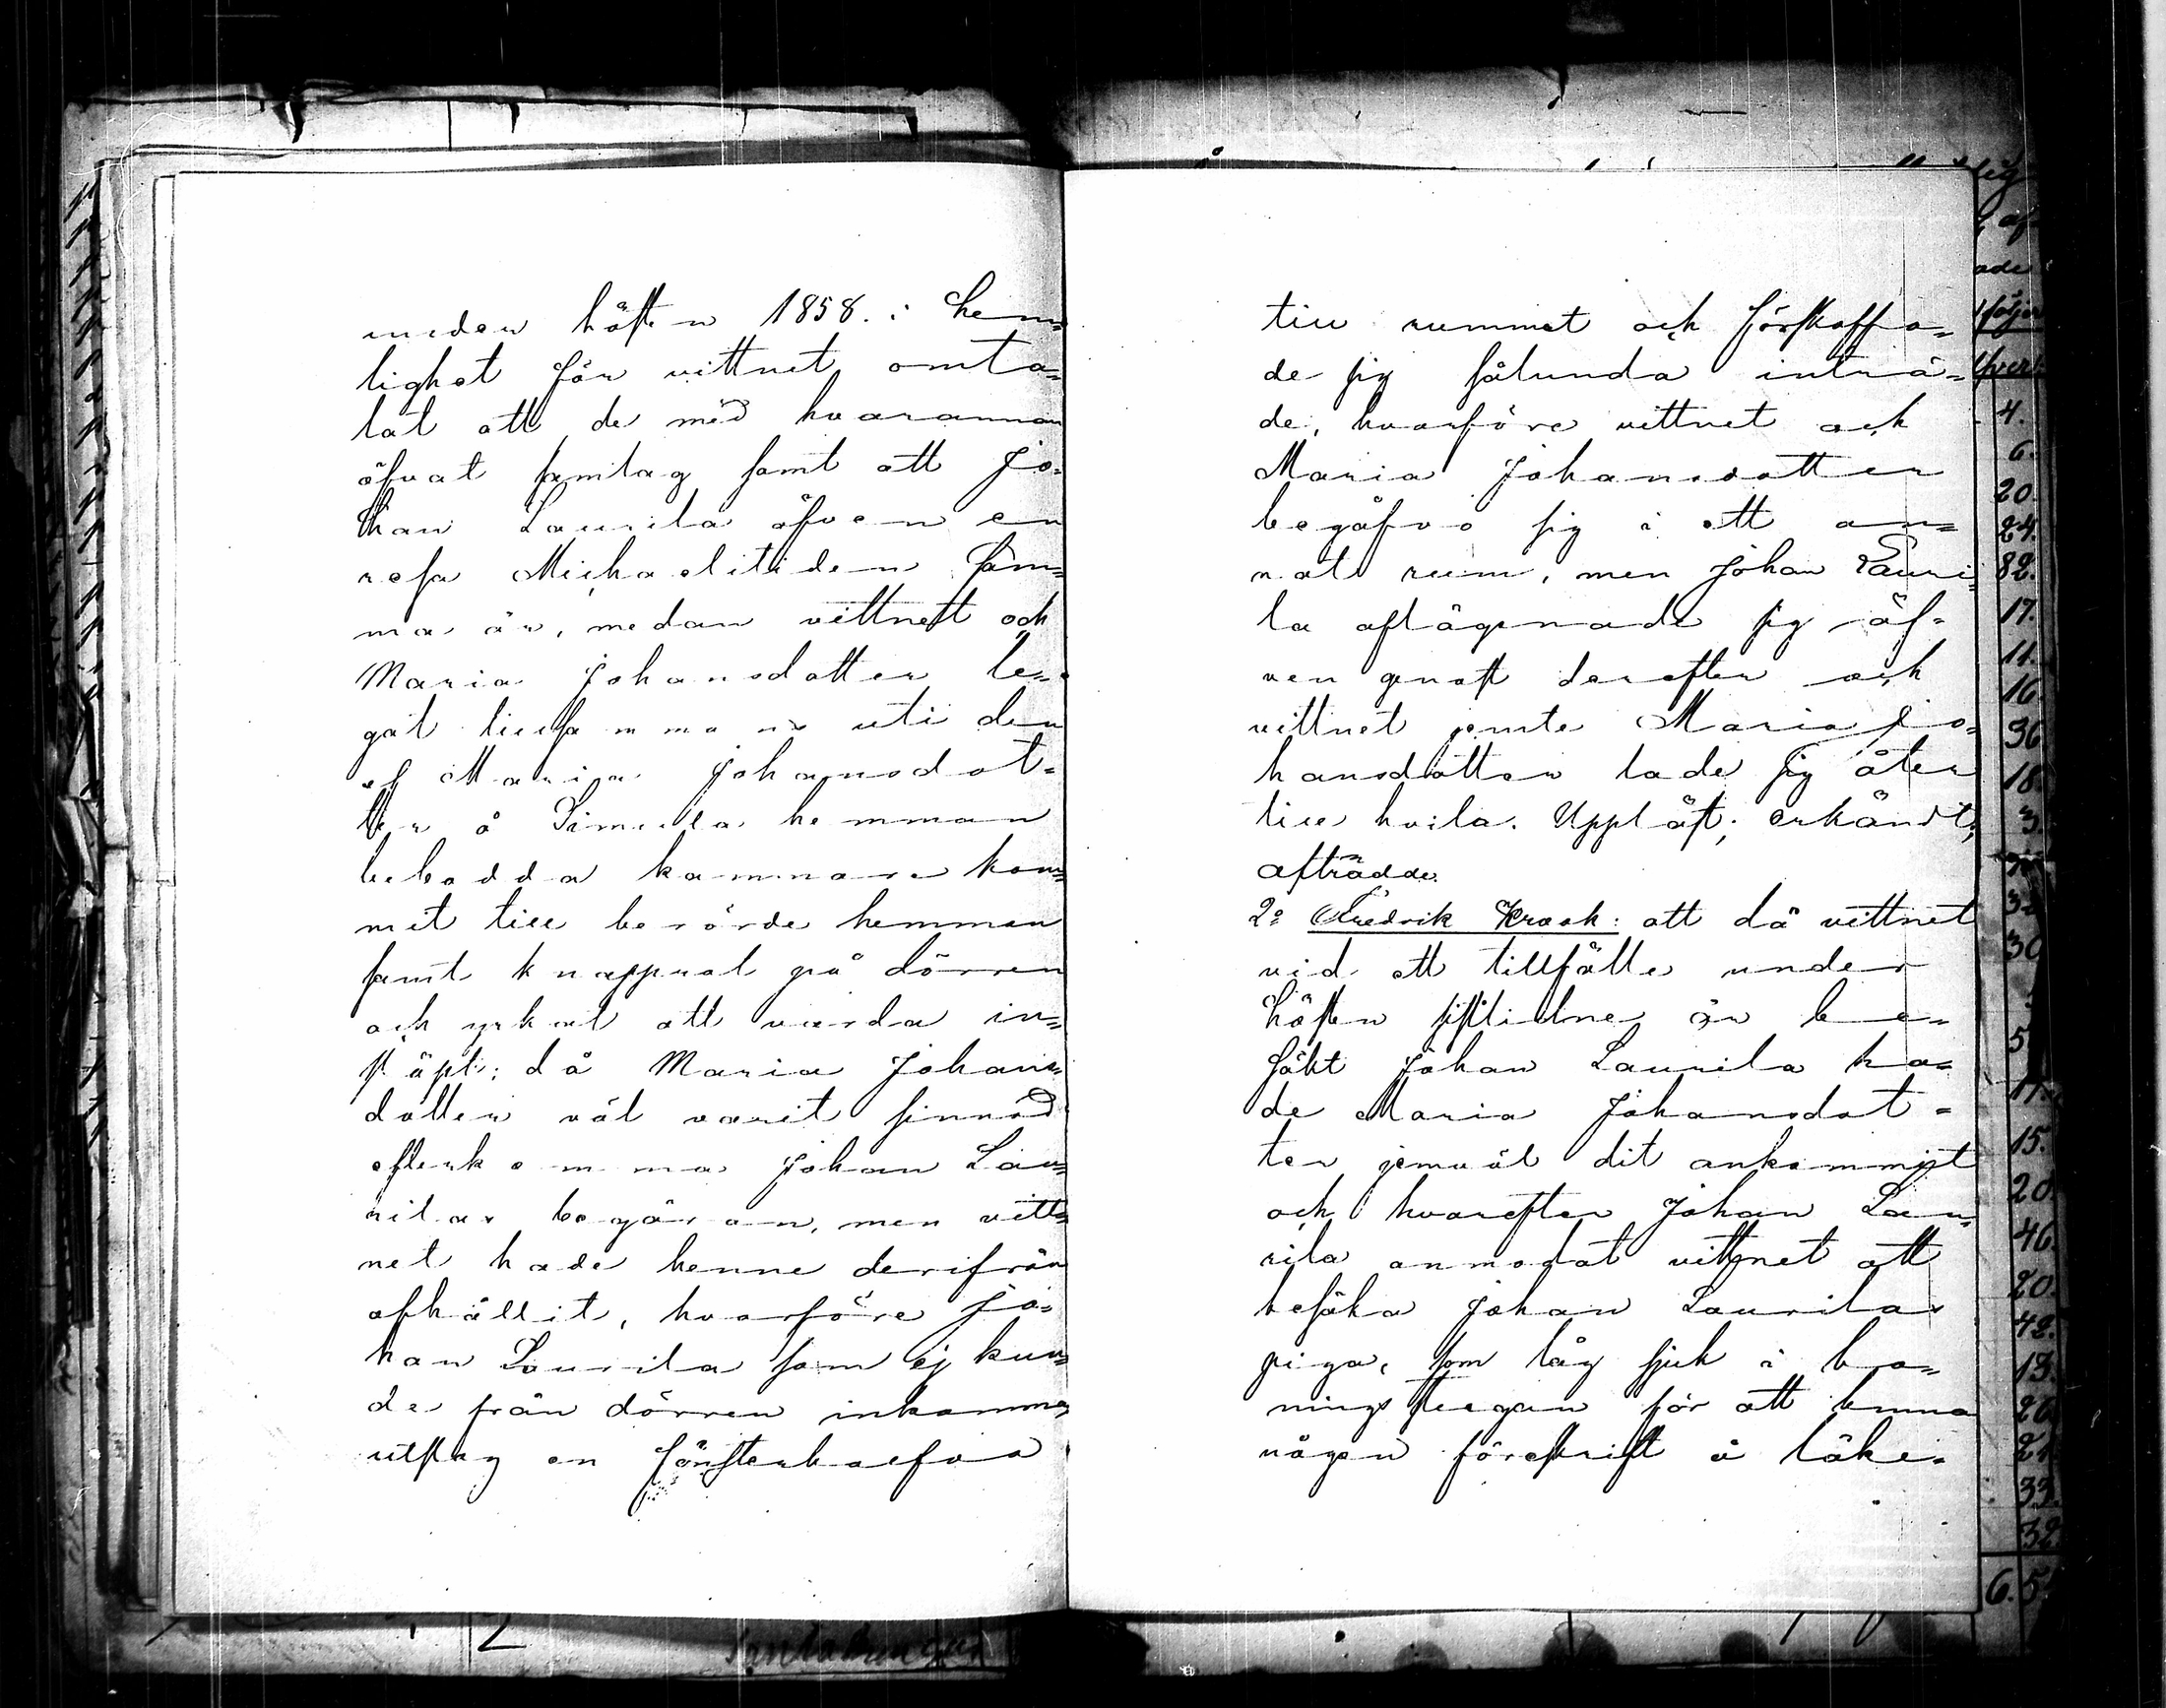 medan hösten 1858. i hem-
lighet för vittnet omta-
lat att de med hvarannan
öfvat samlag samt att Jo-
han Laurila äfven en
resa Michaelitiden sam-
ma år, medan vittnett och
Maria Johansdotter le-
gat tillsammans uti den
af Maria Johansdot-
ter å Simula hemman
bebodda kammare kom-
mit till berörde hemman
samt knappnat på dörren
och yrkat att varda in-
släpt; då Maria Johans-
dotter väl varit sinnad
efterkomma Johan Lau-
rilas begäran, men vitt-
net hade henne derifrån
afhållit, hvarföre Jo-
han Laurila som ej kun-
de från dörren inkomma,
utslag en fönsterhalfva
till rummet och förskaffa-
de sig sålunda inträ-
de, hvarföre vittnet och
Maria Johansdotter
begåfvo sig i ett an-
nat rum, men Johan Lauri-
la aflägsnade sig äf-
ven genast derefter och
vittnet jemte Maria Jo-
hansdotter lade sig åter
till hvila. Uppläst; erkändt;
afträdde.
2º Fredrik Krook: att då vittnet
vid ett tillfälle under
hösten sistlidne år be-
sökt Johan Laurila ha-
de Maria Johansdot-
ter jemväl dit ankommit
och hvarefter Johan Lau-
rila anmodat vittnet att
besöka Johan Laurilas
piga, som låg sjuk i bo-
ningsstugan för att lemna
någon föreskrift å läke-
4.
6.
20.
24.
82.
17.
11.
16
36
18.
3.
30
5
17.
15.
20.
46.
20.
42.
13.
26
21
33.
32
6. 5